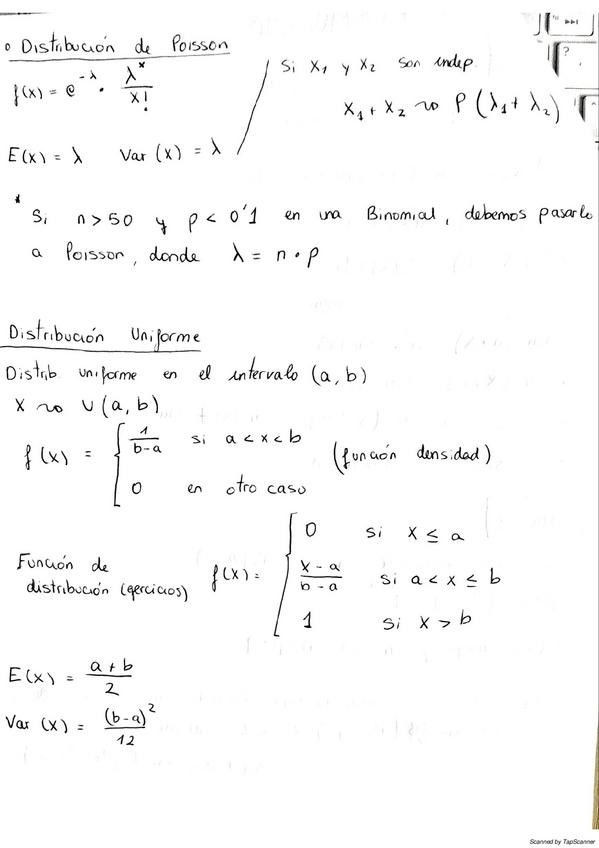 o Distribución de Poisson
f(x) = e^-λ · λ^x / x!
Si X₁ y X₂ son indep
X₁ + X₂ ~ P(λ₁ + λ₂)
E(x) = λ Var (x) = λ
* Si n > 50 y p < 0'1 en una Binomial, debemos pasarlo
a Poisson, donde λ = n · p
Distribución Uniforme
Distrib uniforme en el intervalo (a, b)
X ~ U(a, b)
f(x) = { 1/(b-a) si a < x < b
0 en otro caso
(función densidad)
Función de
distribución (ejercicios)
f(x) = { 0 si x ≤ a
(x-a)/(b-a) si a < x ≤ b
1 si x > b
E(x) = (a+b)/2
Var (x) = (b-a)²/12
Scanned by TapScanner